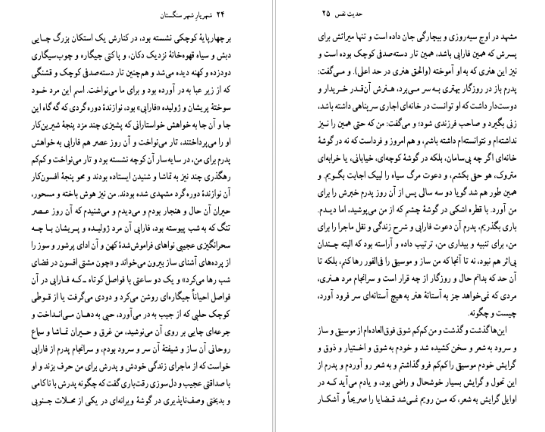 ۲۴ شهریار شهر سنگستان
بر چهارپایهٔ کوچکی نشسته بود، در کنارش یک استکان بزرگ چایی
دبش و سیاه قهوه‌خانهٔ نزدیک دکان، و پاکتی جیگاره و چوب‌سیگاری
دودزده و کهنه دیده می‌شد و هم‌چنین تار دسته‌صدفی کوچک و قشنگی
که از زیر عبا به در آورده بود و برای ما می‌نواخت. اسم این مرد خود
سوختهٔ پریشان و ژولیده «فارابی» بود، نوازندهٔ دوره گردی که گه گاه این
جا و آن جا به خواهش خواستارانی که پشیزی چند مزد پنجهٔ شیرین‌کار
او را می‌پرداختند، تار می‌نواخت و آن روز عصر هم فارابی به خواهش
پدرم برای من، در سایه‌سار آن کوچه نشسته بود و تار می‌نواخت و کم‌کم
رهگذری چند نیز به تماشا و شنیدن ایستاده بودند و محو پنجهٔ افسون‌کار
آن نوازندهٔ دوره گرد مشهدی شده بودند. من نیز هوش باخته و مسحور،
حیران آن حال و هنجار بودم و می‌دیدم و می‌شنیدم که آن روز عصر
تنگ که به شب پیوسته بود، فارابی آن مرد ژولیده و پریشان با چه
سحرانگیزی عجیبی نواهای فراموش‌شدهٔ کهن و آن ادای پرشور و سوز را
از پرده‌های آشنای ساز بیرون می‌خواند و «چون مشتی افسون در فضای
شب رها می‌کرد» و یک دو ساعتی با فواصل کوتاه ـ که فارابی در آن
فواصل احیاناً جیگاره‌ای روشن می‌کرد و دودی می‌گرفت یا از قوطی
کوچک حلبی که از جیب به در می‌آورد، حبی به دهان می‌انداخت و
جرعه‌ای چایی بر روی آن می‌نوشید، من غرق و حیران تماشا و سماع
روحانی آن ساز و شیفتهٔ آن سر و سرود بودم، و سرانجام پدرم از فارابی
خواست که از ماجرای زندگی خودش و پدرش برای من حرف بزند و او
با صداقتی عجیب و دل‌سوزی رقت‌باری گفت که چگونه پدرش با ناکامی
و بدبختی وصف‌ناپذیری در گوشهٔ ویرانه‌ای در یکی از محلات جنوبی
حدیث نفس ۲۵
مشهد در اوج سیه‌روزی و بیچارگی جان داده است و تنها میراثش برای
پسرش که همین فارابی باشد، همین تار دسته‌صدفی کوچک بوده است و
نیز این هنری که به او آموخته (والحق هنری در حد اعلی). و می‌گفت:
پدرم باز در روزگار بهتری به سر می‌برد، هنرش آن‌قدر خریدار و
دوست‌دار داشت که او توانست در خانه‌ای اجاری سرپناهی داشته باشد،
زنی بگیرد و صاحب فرزندی شود؛ و می‌گفت: من که حتی همین را نیز
نداشته‌ام و نتوانسته‌ام داشته باشم، و هم امروز و فرداست که نه در گوشهٔ
خانه‌ای اگر چه بی‌سامان، بلکه در گوشهٔ کوچه‌ای، خیابانی، یا خرابه‌ای
متروک، هو حق بکشم، و دعوت مرگ سیاه را لبیک اجابت بگویم. و
همین طور هم شد گویا دو سه سالی پس از آن روز پدرم خبرش را برای
من آورد. با قطره اشکی در گوشهٔ چشم که از من می‌پوشید، اما دیدم.
باری بگذریم، پدرم آن دعوت فارابی و شرح زندگی و نقل ماجرا را برای
من، برای تنبیه و بیداری من، ترتیب داده و آراسته بود که البته چندان
بی‌اثر هم نبود، نه تا آنجا که من ساز و موسیقی را فی‌الفور رها کنم، بلکه تا
آن حد که بدانم حال و روزگار از چه قرار است و سرانجام مرد هنری،
مردی که نمی‌خواهد جز به آستانهٔ هنر به هیچ آستانه‌ای سر فرود آورد،
چیست و چگونه.
این‌ها گذشت و گذشت و من کم‌کم شوق فوق‌العاده‌ام از موسیقی و ساز
و سرود به شعر و سخن کشیده شد و خودم به شوق و اختیار و ذوق و
گرایش کودکی موسیقی را کم‌کم فرو گذاشتم و به شعر رو آوردم و پدرم از
این تحول و گرایش بسیار خوشحال و راضی بود، و یادم می‌آید که در
اوایل گرایش به شعر، که من رویم نمی‌شد قضایا را صریحاً و آشکار